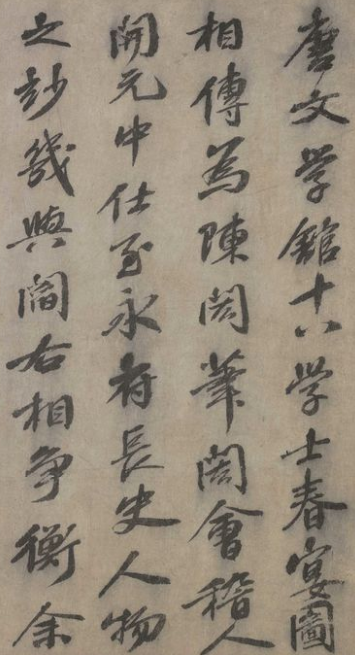 唐文学館十八学士春宴圖
相傳為陳閎筆閎會稽人
開元中仕至永府長史人物
之妙幾與閻右相爭衡余